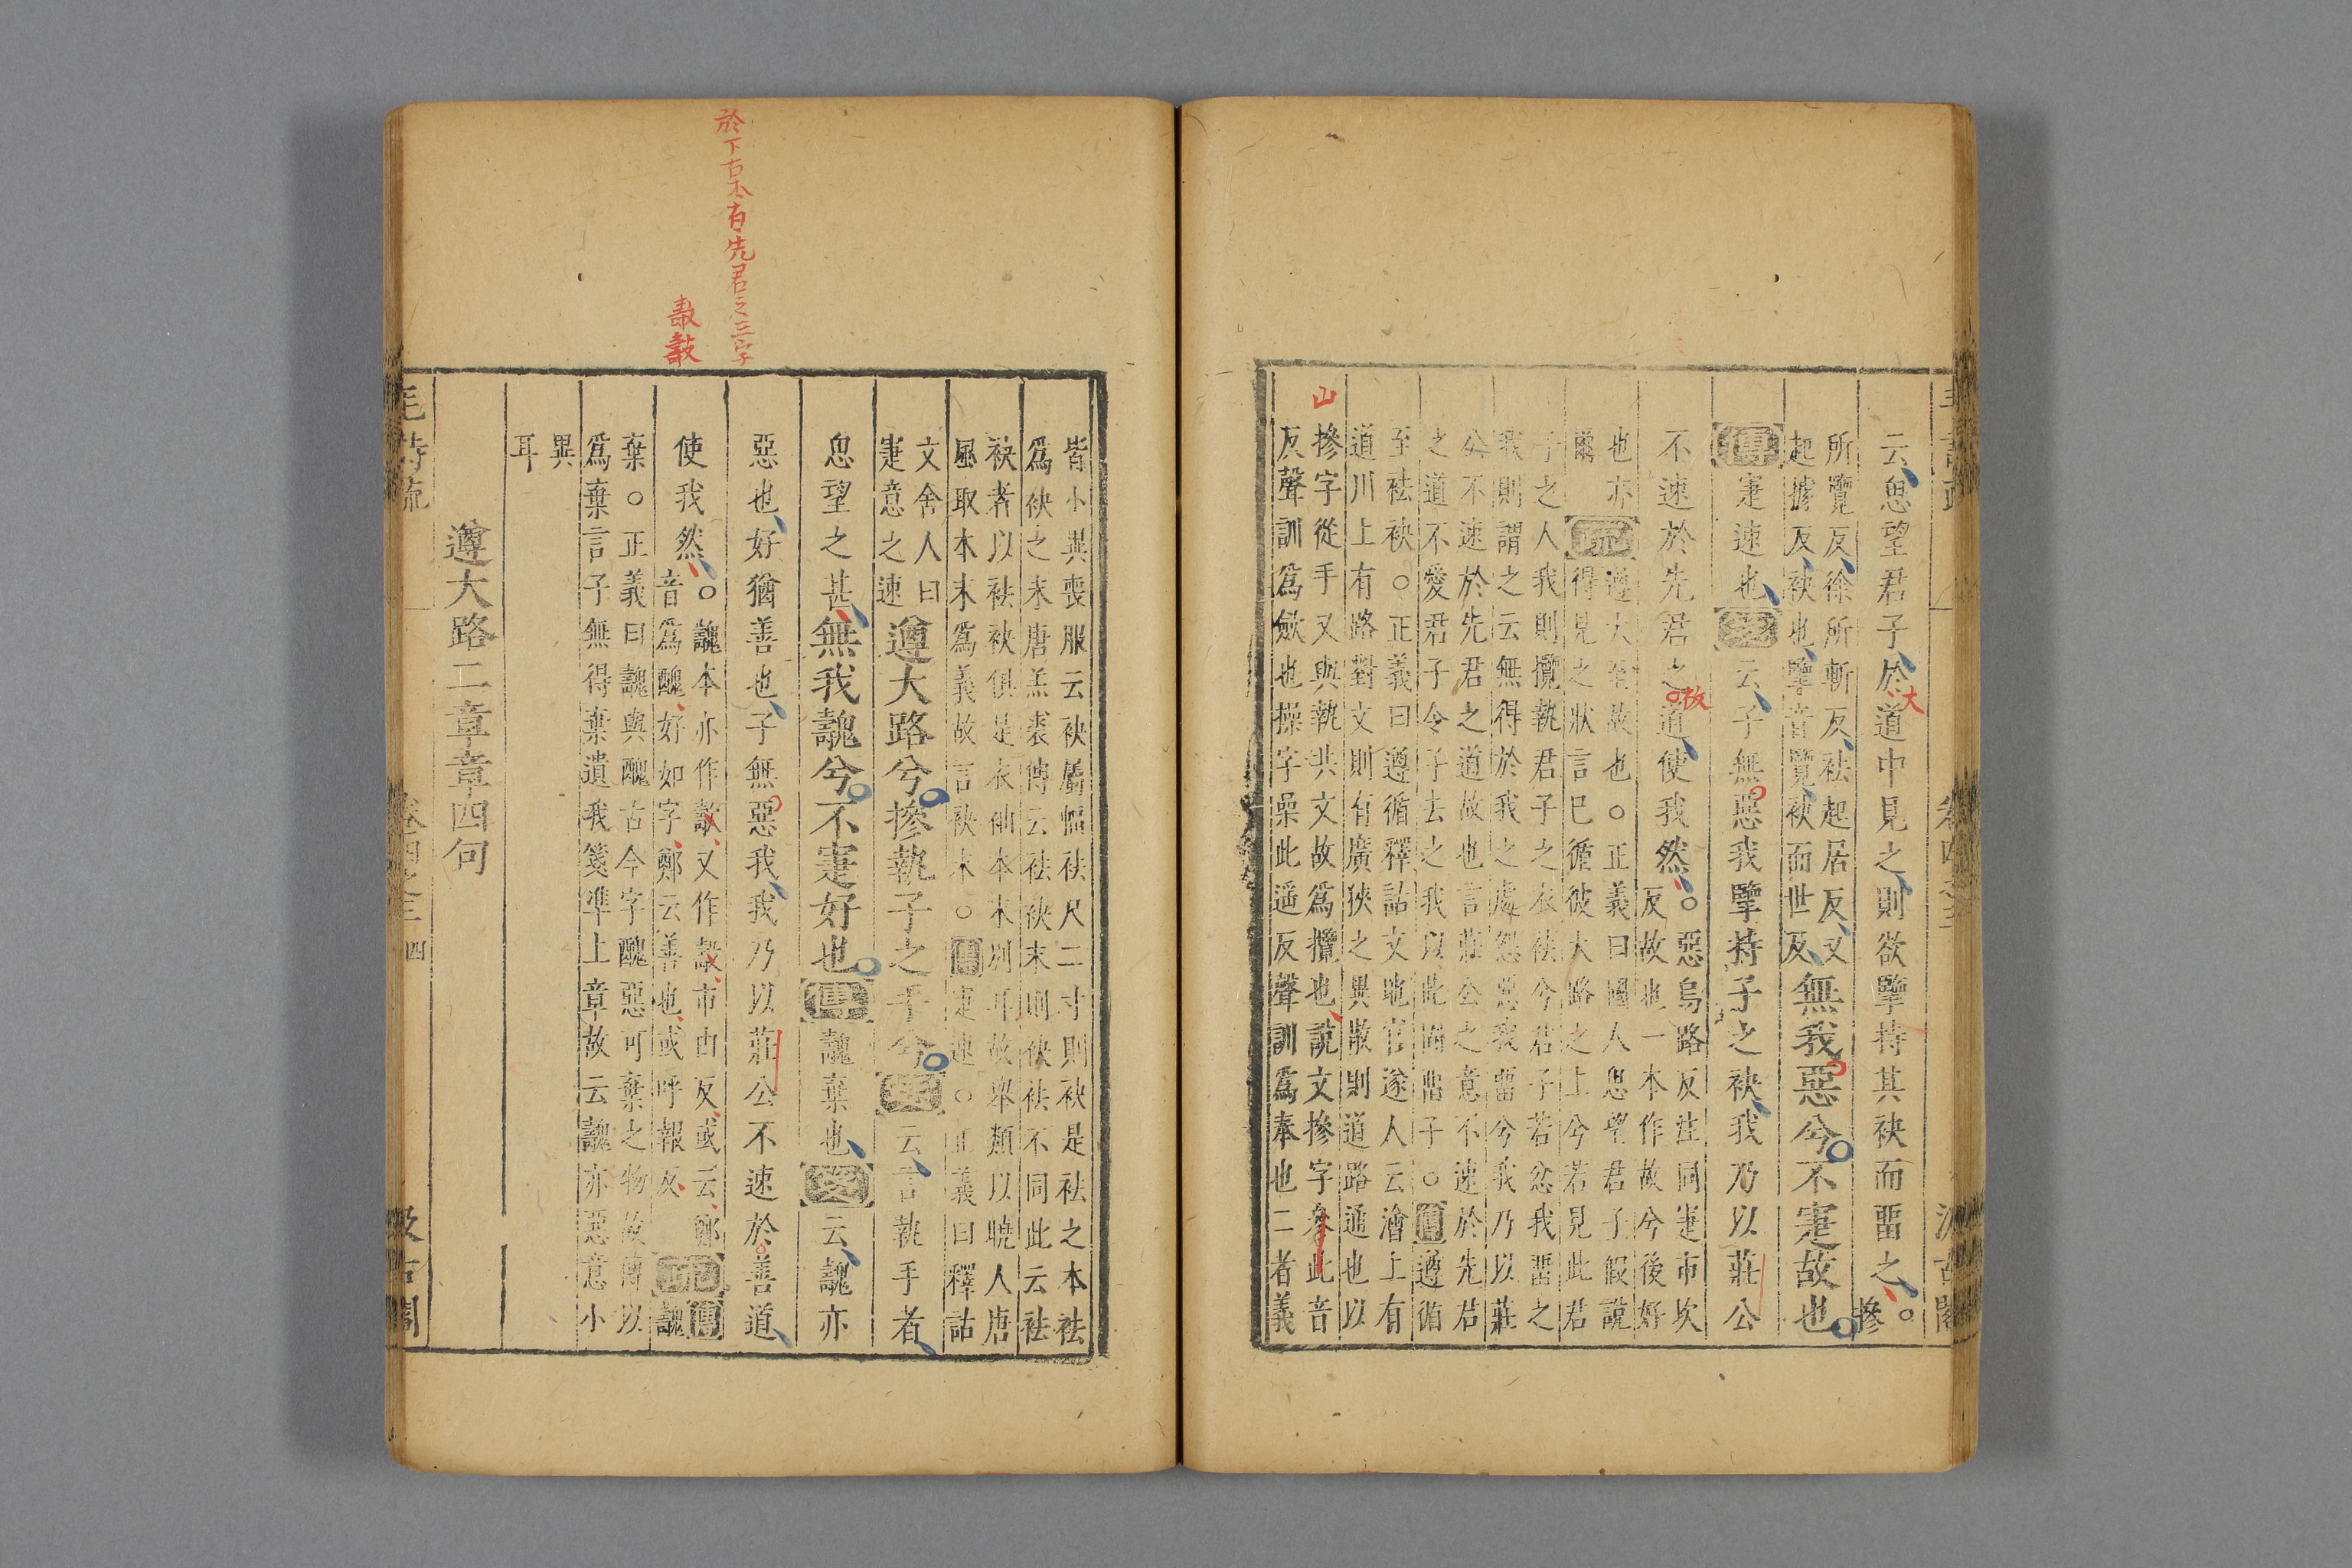 云思望君子於道中見之則欲擥持其袂而畱之。摻
所覽反徐所斬反袪起居反又
起據反袂也擥音覽袂面世反
無我惡兮不寁故也
傳寁速也箋云子無惡我擥持子之袂我乃以莊公
不速於先君之道使我然。惡烏路反注同寁市坎
反故也一本作故兮後好
也亦
爾
疏
遵大至故也○正義曰國人思望君子假說
得見之狀言已循彼大路之上兮若見此君
子之人我則攬執君子之衣袪兮君子若忿我畱之
我則謂之云無得於我之處怨惡我畱兮我乃以莊
公不速於先君之道故也言莊公之意不速於先君
之道不愛君子令子去之我以此固畱子○傳遵循
至袪袂○正義曰遵循釋詁文地官遂人云澮上有
道川上有路對文則有廣狹之異散則道路通也以
摻字從手又與執共文故爲攬也說文摻字參此音
反聲訓爲斂也操字喿此遥反聲訓爲奉也二者義
大
故
山
皆小異喪服云袂屬幅袪尺二寸則袂是袪之本袪
爲袂之末唐羔裘傳云袪袂末則袂袪不同此云袪
袂者以袪袂俱是衣袖本末別耳故舉類以曉人唐
風取本末爲義故言袂末○傳寁速○正義曰釋詁
文舍人曰
寁意之速
遵大路兮摻執子之手兮箋云言執手者
思望之甚無我魗兮不寁好也傳魗棄也箋云魗亦
惡也好猶善也子無惡我我乃以莊公不速於善道
使我然。魗本亦作𣀳又作𣀘市由反或云鄭
音爲醜好如字鄭云善也或呼報反
疏
傳魗
棄○正義曰魗與醜古今字醜惡可棄之物故傳以
爲棄言子無得棄遺我箋準上章故云魗亦惡意小
異
耳
遵大路二章章四句
毛詩疏 卷四之三 四 汲古閣
於下古本有先君之三字